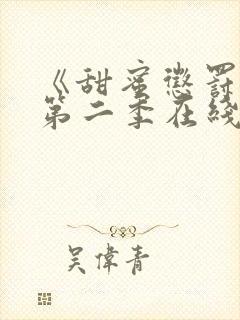 《甜蜜惩罚
第二季在线
吴伟青